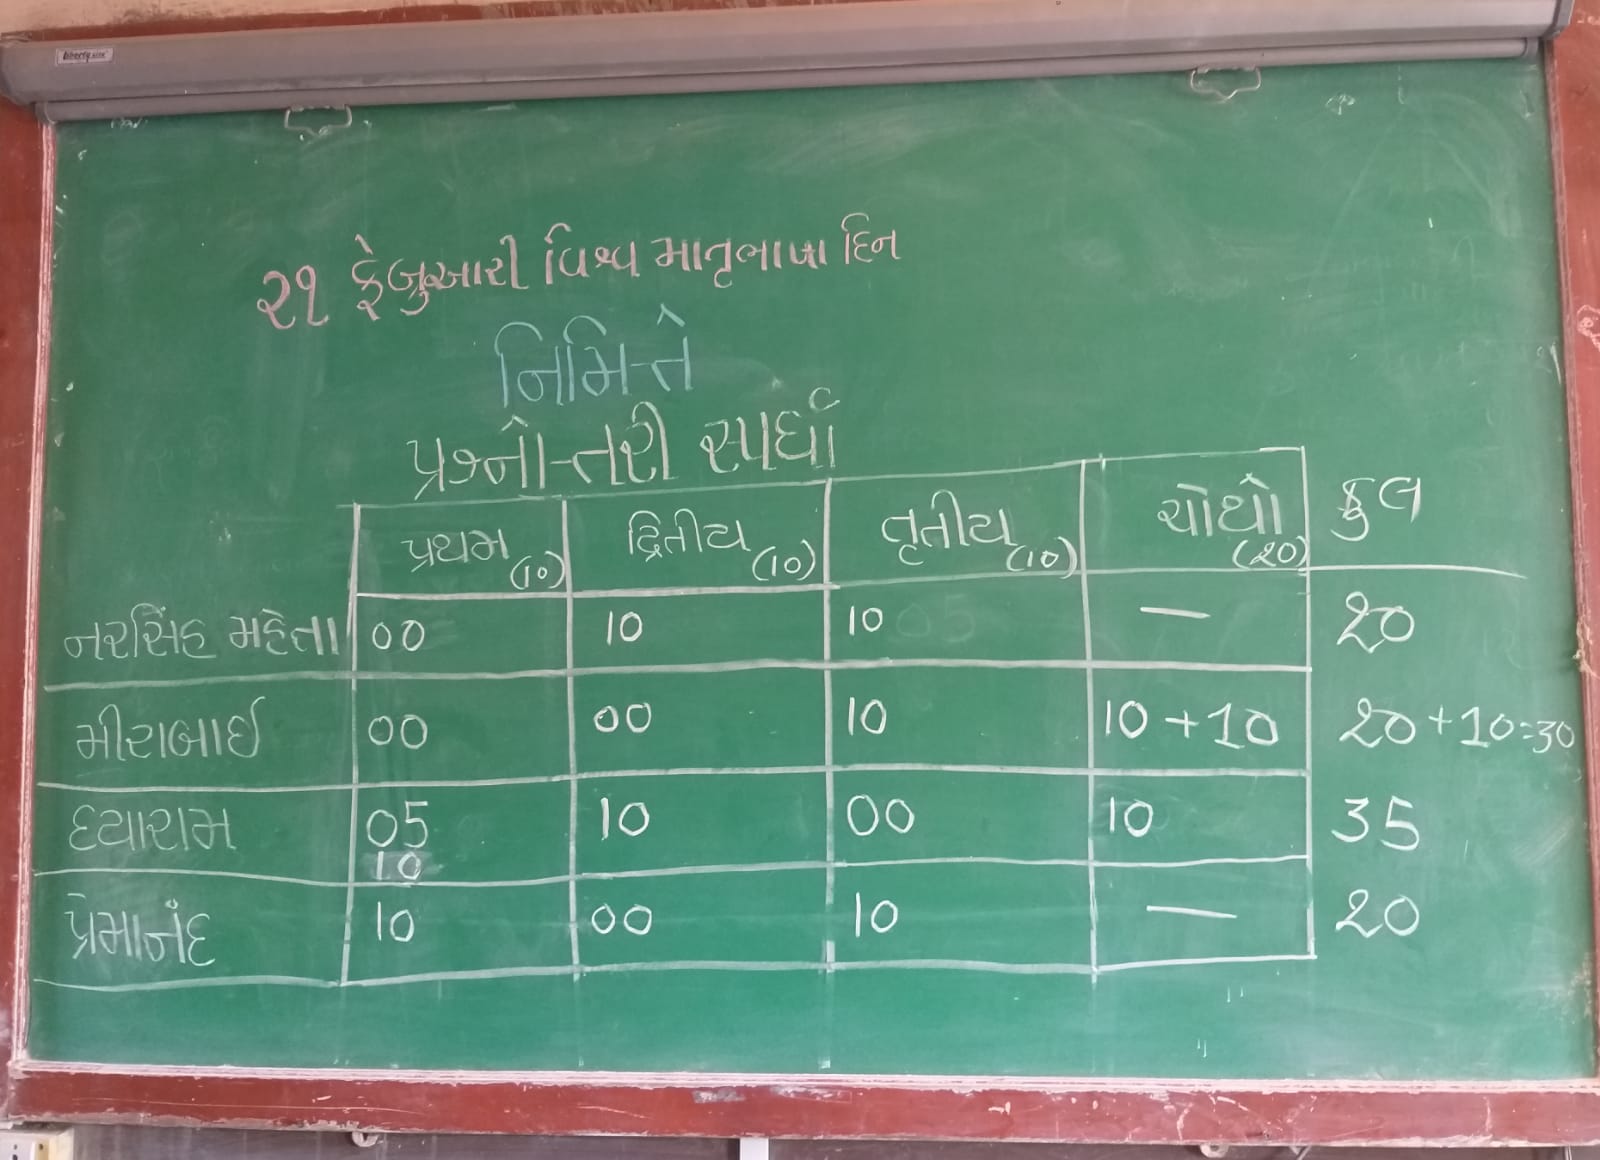 liberty
૨૧ ફેબ્રુઆરી વિશ્વ માતૃભાષા દિન
નિમિત્તે
પ્રશ્નોત્તરી સ્પર્ધા
પ્રથમ (10) દ્વિતીય (10) તૃતીય (10) ચોથો (20) કુલ
નરસિંહ મહેતા 00 10 10 — 20
મીરાબાઈ 00 00 10 10 + 10 20 + 10 = 30
દયારામ 05 10 00 10 35
10
પ્રેમાનંદ 10 00 10 — 20